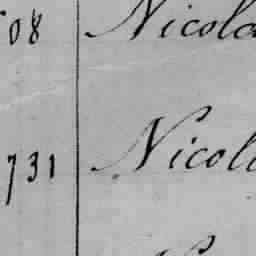 08 Nicola
731 Nicol